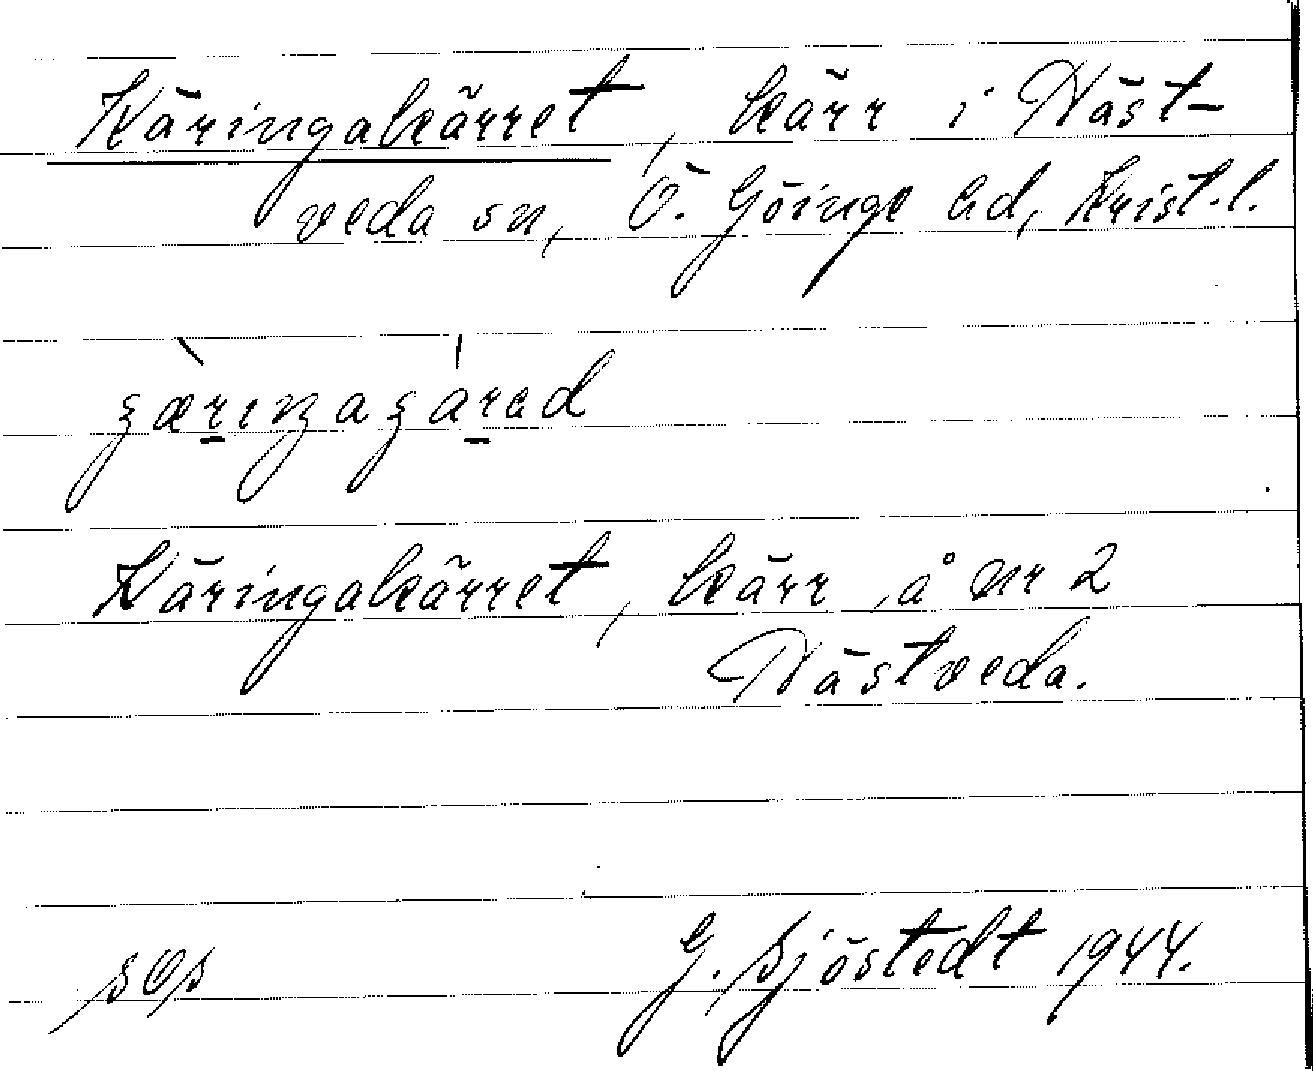 Käringakärret, kärr i Näst-
veda sn, Ö. Göinge hd, Krist. l.
Käringakärret, kärr å nr 2
Nästveda.
G. Sjöstedt 1944.